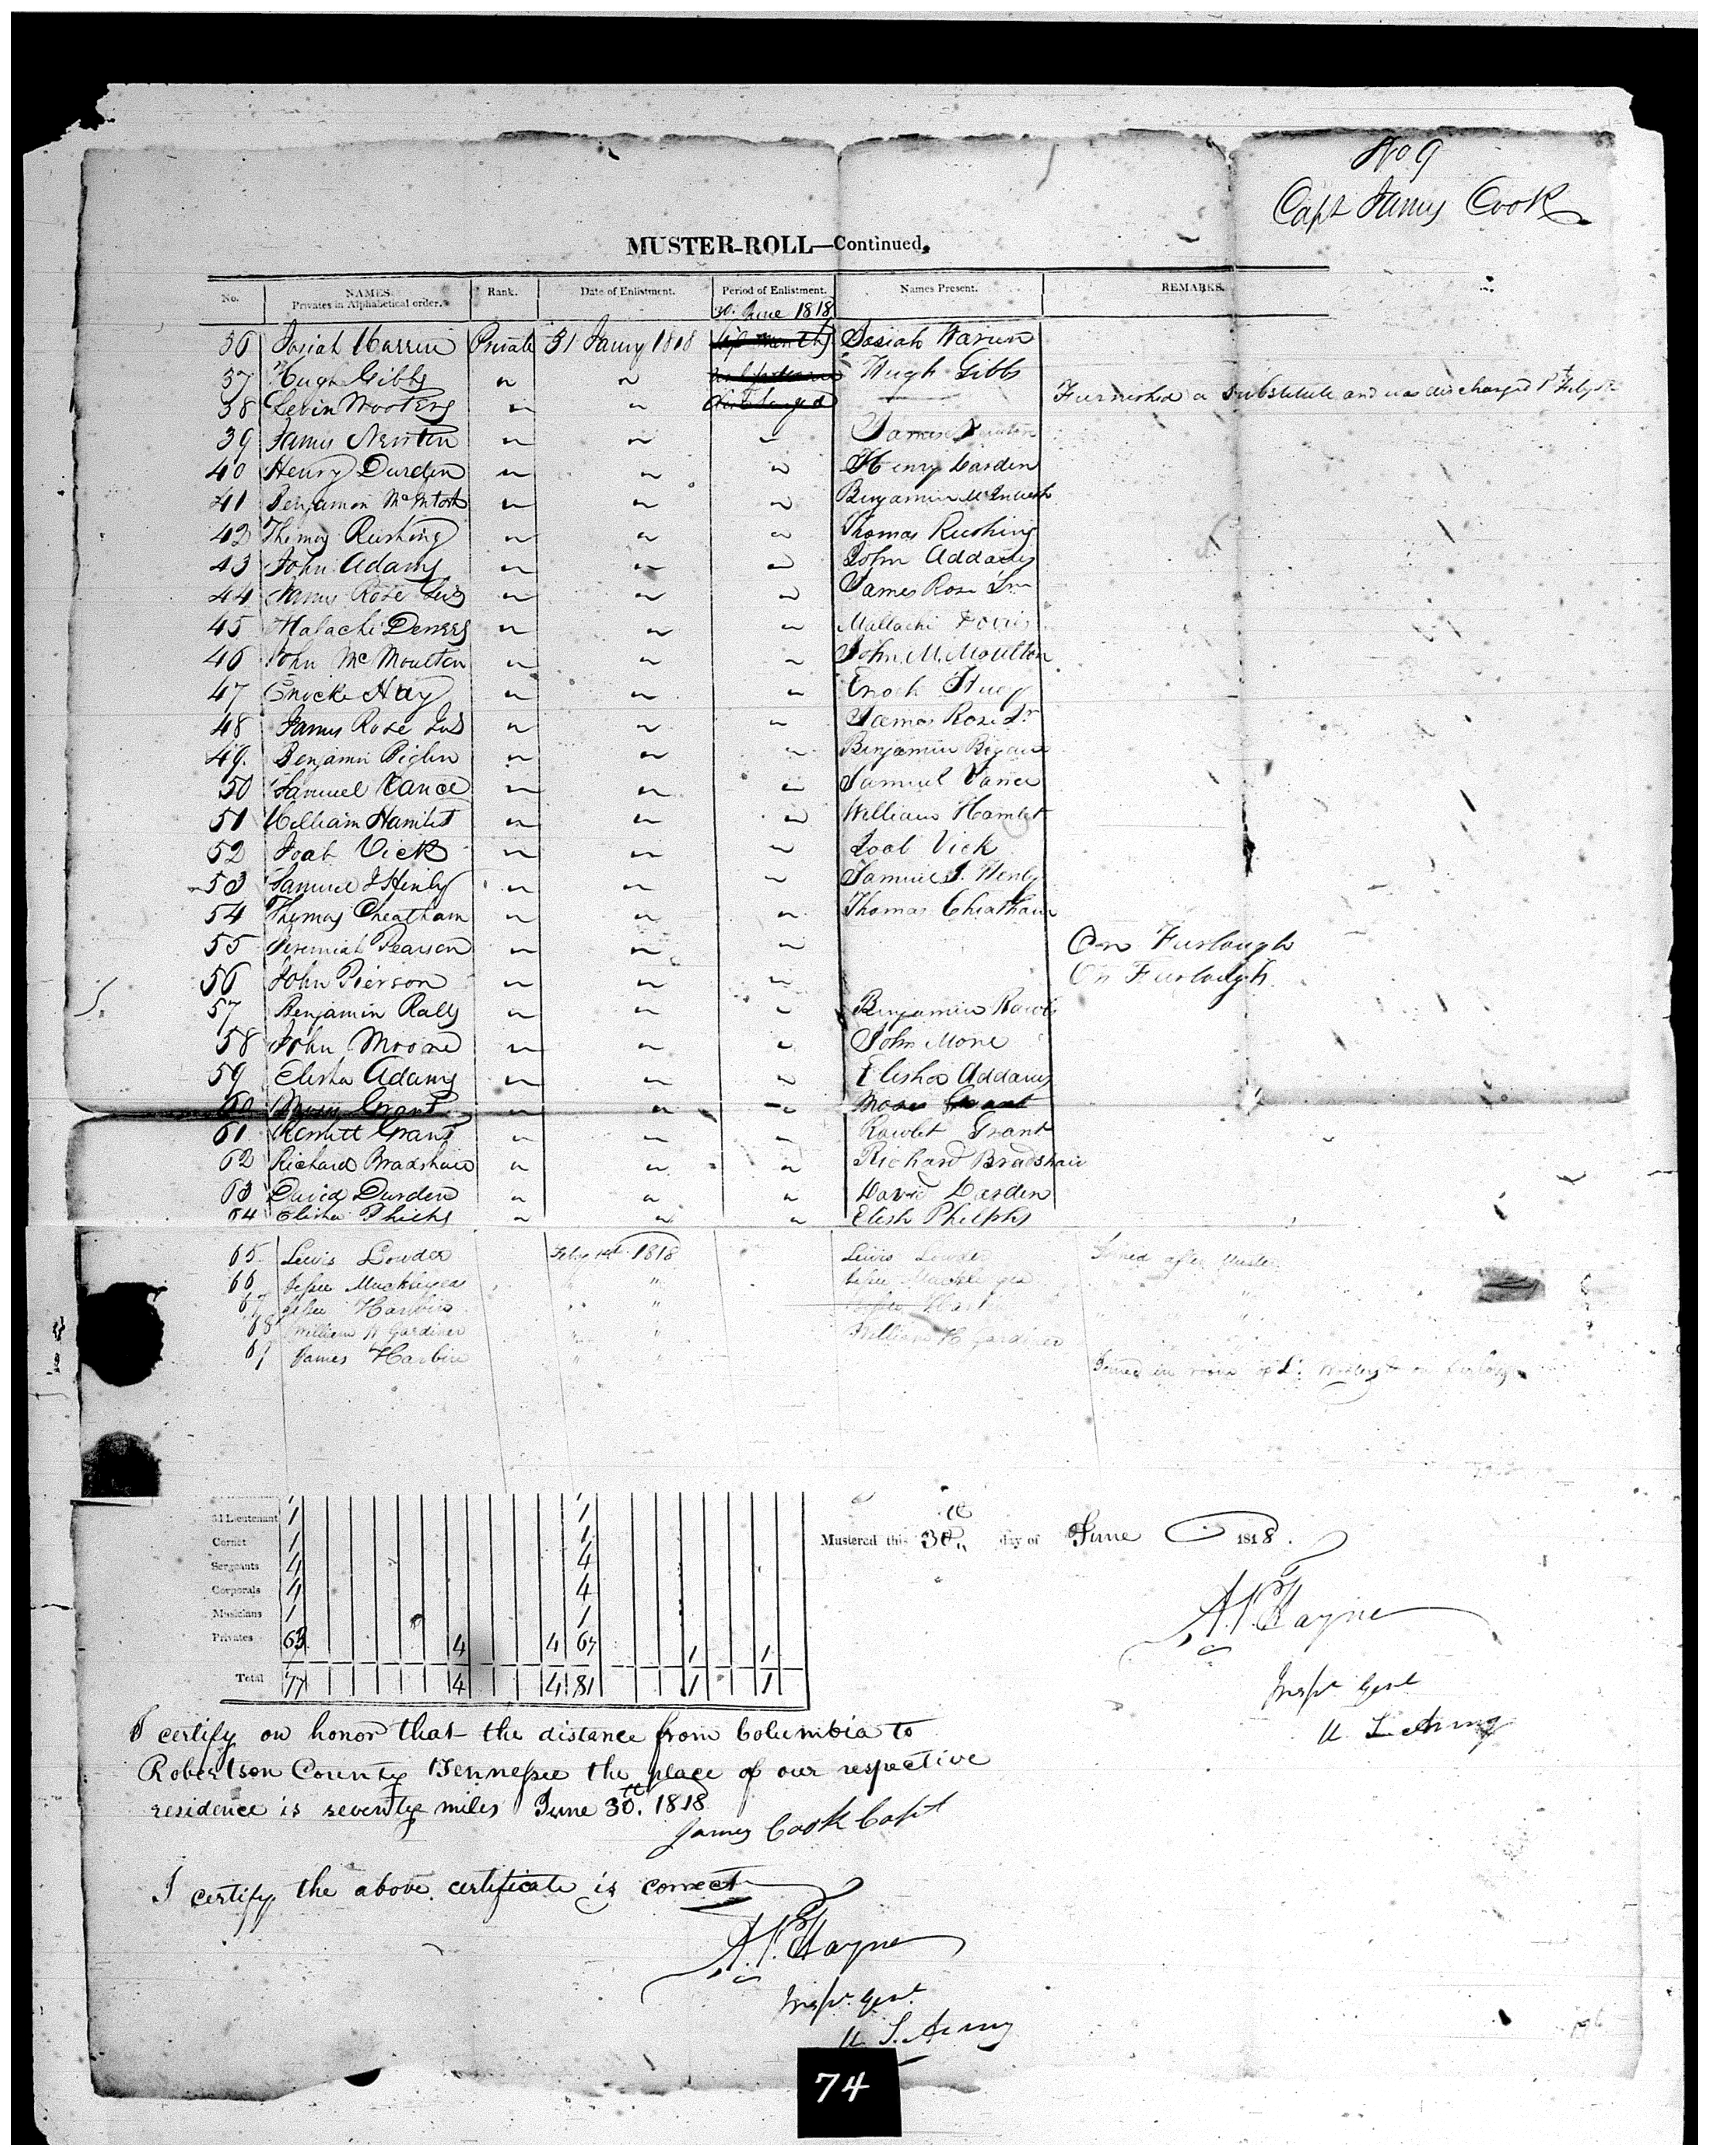 No 9
Capt James Cook
MUSTER-ROLL—Continued.
No. NAMES. Privates in Alphabetical order. Rank. Date of Enlistment. Period of Enlistment. Names Present. REMARKS.
30. June 1818
36 Josiah Warren Private 31 Jany 1818 Josiah Warren
37 Hugh Gibbs " " Hugh Gibbs
38 Levin Wooters " " Furnished a Substitute and was discharged
39 James Newton " " " James Newton
40 Henry Durden " " " Henry Darden
41 Benjamin McIntosh " " " Benjamin
42 Thomas Rushing " " " Thomas Rushing
43 John Adams " " " John Addams
44 James Rose " " " James Rose
45 Malachi " " " Mallachi
46 John McMoulton " " " John M. Moulton
47 Enock Hay " " " Enoch
48 James Rose " " " James Rose
49. Benjamin " " " Benjamin
50 Samuel Vance " " " Samuel Vance
51 William Hamlet " " " William Hamlet
52 Joab Vick " " " Joab Vick
53 Samuel J Henly " " " Samuel J. Henly
54 Thomas Cheatham " " " Thomas Cheatham
55 Jeremiah Pearson " " " On Furlough
56 John Pierson " " " On Furlough
57 Benjamin Ralls " " " Benjamin
58 John Moore " " " John More
59 Elisha Adams " " " Elisha Addams
60 Moses Grant " " " Moses Grant
61 Grant " " " Rawlet Grant
62 Richard Bradshaw " " " Richard Bradshaw
63 David Durden " " " David Darden
64 Elisha " " " Elish Philphs
65 Lewis Lowder Feby 1st 1818 Lewis Lowder Joined after Muster
66 Jesse " " Jesse " "
67 Jesse Harbin " " " "
68 William H Gardiner " " William H Gardiner " "
69 James Harbin " " Joined in room of L. on furlough
3d Lieutenant 1 1
Cornet 1 1
Sergeants 4 4
Corporals 4 4
Musicians 1 1
Privates 63 4 4 67 1 1
Total 77 4 4 81 1 1
Mustered this 30th day of June 1818.
A. P. Hayne
Inspr Genl
U. S. Army
I certify on honor that the distance from Columbia to
Robertson County Tennessee the place of our respective
residence is seventy miles June 30th. 1818
James Cook Capt
I certify the above certificate is correct
A. P. Hayne
Inspr. Genl.
U. S. Army
74